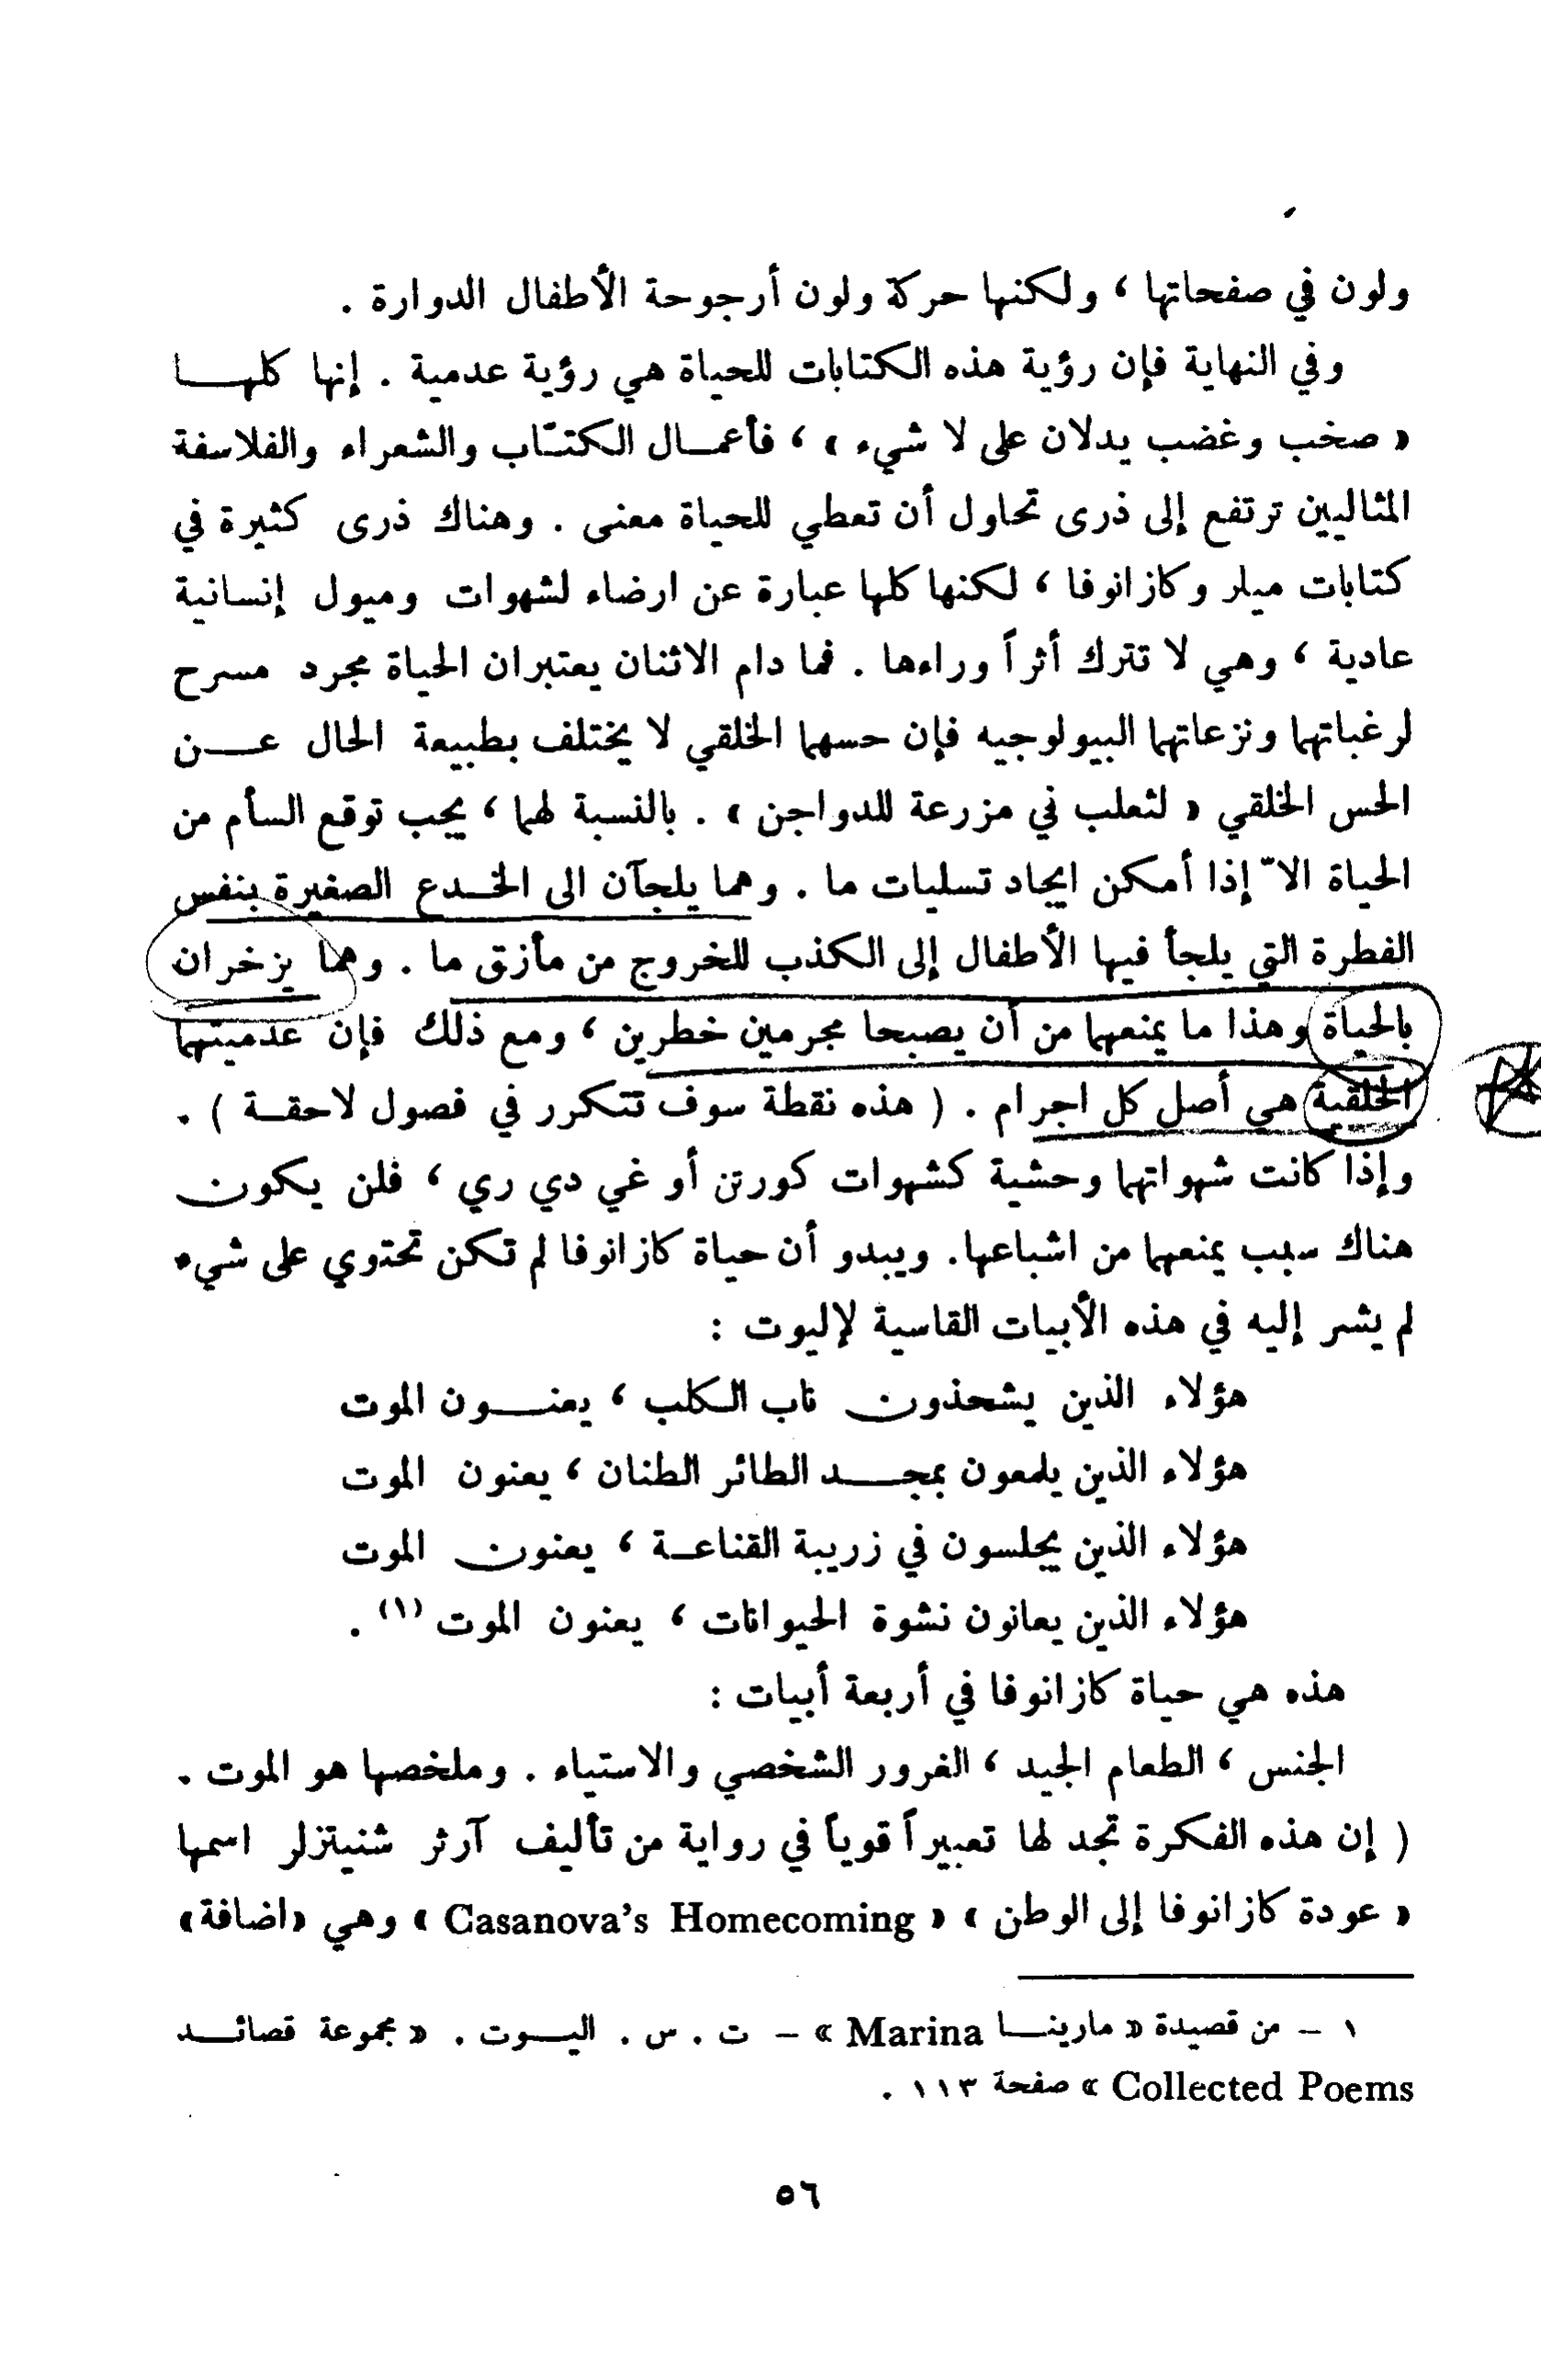 ولون في صفحاتها ، ولكنها حركة ولون أرجوحة الأطفال الدوارة .
وفي النهاية فإن رؤية هذه الكتابات للحياة هي رؤية عدمية . إنها كلهـــا
« صخب وغضب يدلان على لا شيء » ، فأعمـال الكتـّاب والشعراء والفلاسفة
المثاليين ترتفع إلى ذرى تحاول أن تعطي للحياة معنى . وهناك ذرى كثيرة في
كتابات ميلر وكازانوفا ، لكنها كلها عبارة عن ارضاء لشهوات وميول إنسانية
عادية ، وهي لا تترك أثراً وراءها . فما دام الاثنان يعتبران الحياة مجرد مسرح
لرغباتهما ونزعاتهما البيولوجيه فإن حسهما الخلقي لا يختلف بطبيعة الحال عــن
الحس الخلقي « لثعلب في مزرعة للدواجن » . بالنسبة لهما ، يجب توقع السأم من
الحياة الاّ إذا أمكن ايجاد تسليات ما . وهما يلجآن الى الخـدع الصغيرة بنفس
الفطرة التي يلجأ فيها الأطفال إلى الكذب للخروج من مأزق ما . وهما يزخران
بالحياة وهذا ما يمنعهما من أن يصبحا مجرمين خطرين ، ومع ذلك فإن عدميتهما
الخلقية هي أصل كل اجرام . ( هذه نقطة سوف تتكرر في فصول لاحقـة ) .
وإذا كانت شهواتهما وحشية كشهوات كورتن أو غي دي ري ، فلن يكون
هناك سبب يمنعهما من اشباعها. ويبدو أن حياة كازانوفا لم تكن تحتوي على شيء
لم يشر إليه في هذه الأبيات القاسية لإليوت :
هؤلاء الذين يشحذون ناب الكلب ، يعنـــون الموت
هؤلاء الذين يلمعون بمجـــد الطائر الطنان ، يعنون الموت
هؤلاء الذين يجلسون في زريبة القناعـة ، يعنون الموت
هؤلاء الذين يعانون نشوة الحيوانات ، يعنون الموت (١) .
هذه هي حياة كازانوفا في أربعة أبيات :
الجنس ، الطعام الجيد ، الغرور الشخصي والاستياء . وملخصها هو الموت .
( إن هذه الفكرة تجد لها تعبيراً قوياً في رواية من تأليف آرثر شنيتزلر اسمها
« عودة كازانوفا إلى الوطن » « Casanova's Homecoming » وهي «اضافة»
١ – من قصيدة « مارينــا Marina » – ت . س . اليــوت . « مجموعة قصائــد
Collected Poems » صفحة ١١٣ .
٥٦